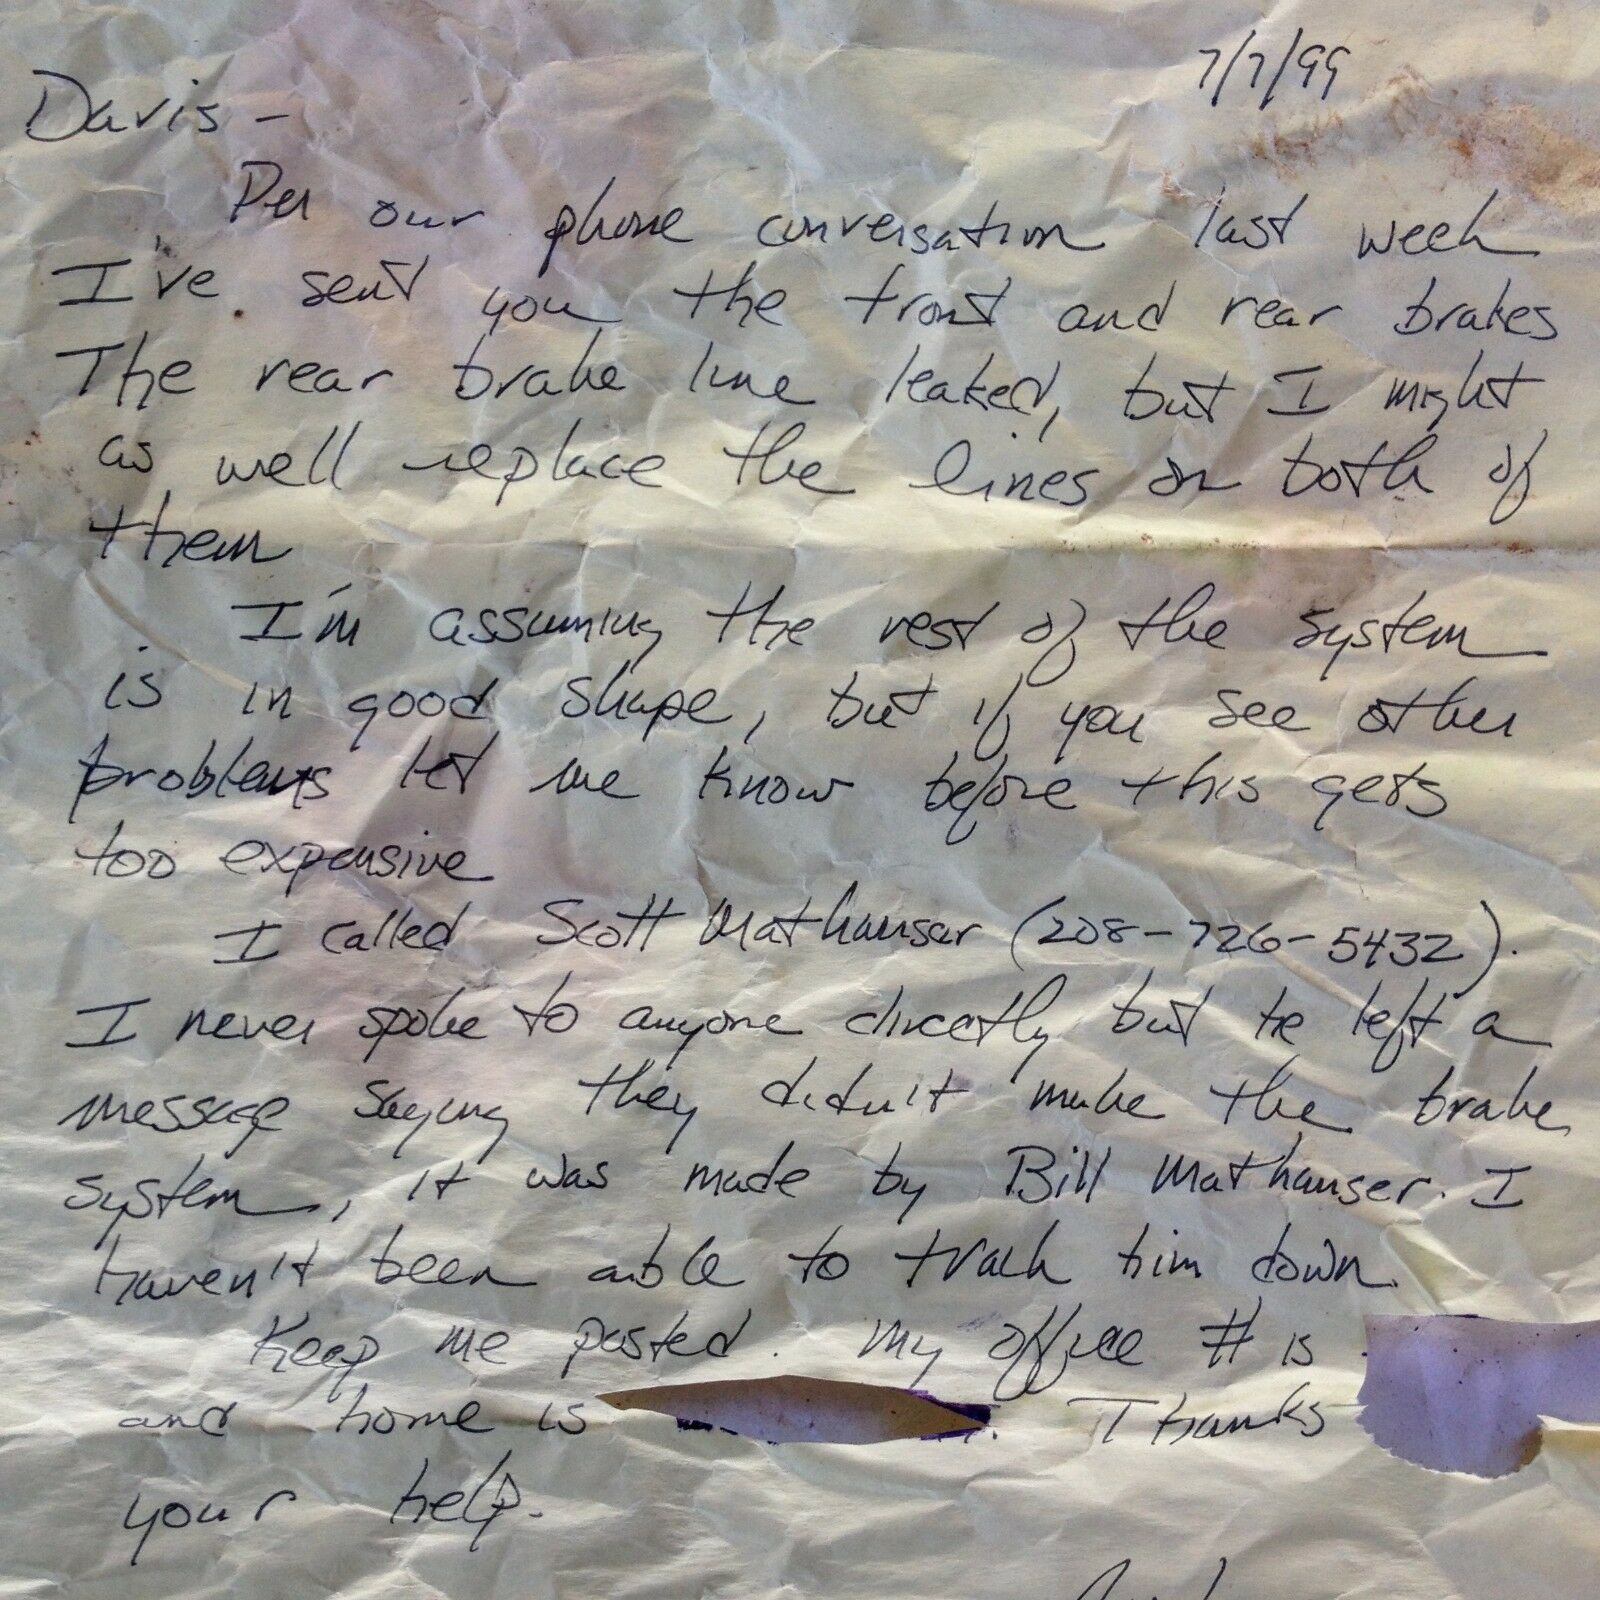 7/7/99
Davis -
Per our phone conversation last week
I've sent you the front and rear brakes
The rear brake line leaked, but I might
as well replace the lines on both of
them
I'm assuming the rest of the system
is in good shape, but if you see other
problems let me know before this gets
too expensive
I called Scott Mathauser (208-726-5432).
I never spoke to anyone directly but he left a
message saying they didn't make the brake
system, it was made by Bill Mathauser. I
haven't been able to track him down.
Keep me posted. My office # is
and home is Thanks
your help.